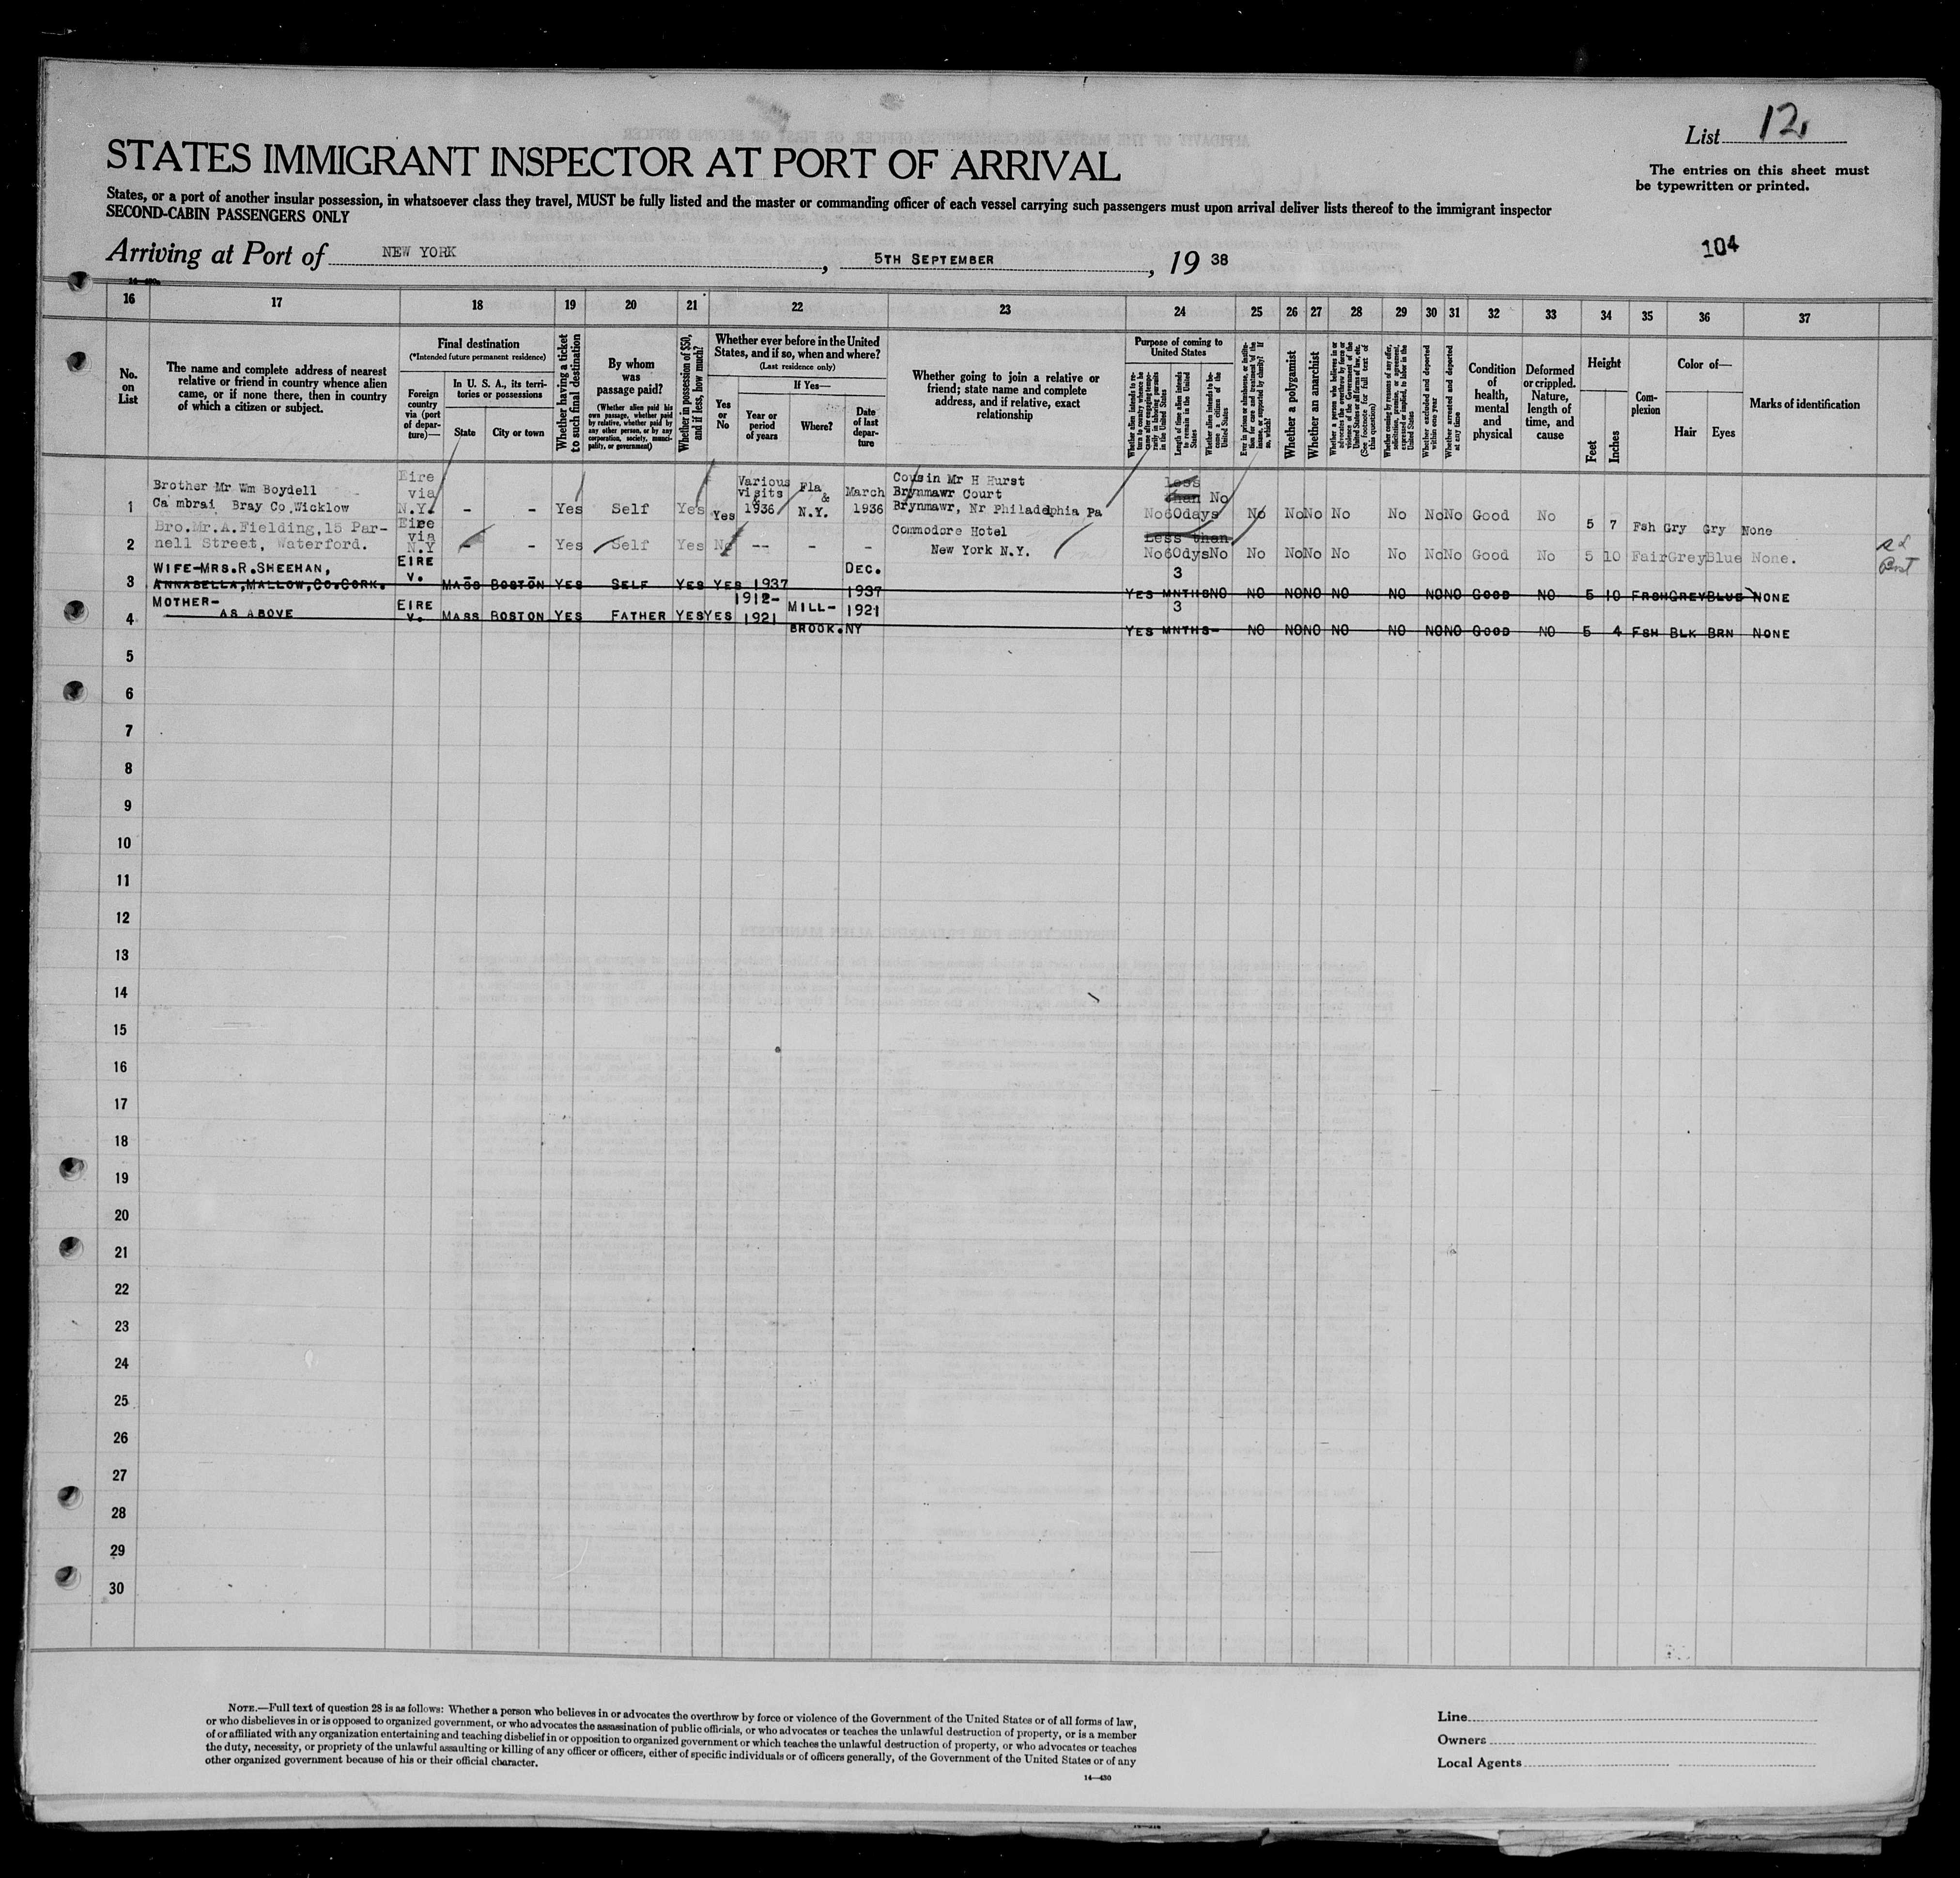 List 12
The entries on this sheet must
be typewritten or printed.
STATES IMMIGRANT INSPECTOR AT PORT OF ARRIVAL
States, or a port of another insular possession, in whatsoever class they travel, MUST be fully listed and the master or commanding officer of each vessel carrying such passengers must upon arrival deliver lists thereof to the immigrant inspector
SECOND-CABIN PASSENGERS ONLY
104
Arriving at Port of NEW YORK, 5TH SEPTEMBER, 19 38
16 17 18 19 20 21 22 23 24 25 26 27 28 29 30 31 32 33 34 35 36 37
No. on List
The name and complete address of nearest
relative or friend in country whence alien
came, or if none there, then in country
of which a citizen or subject.
Final destination
(*Intended future permanent residence)
Foreign
country
via (port
of depar-
ture)—
In U. S. A., its terri-
tories or possessions
State City or town
Whether having a ticket
to such final destination
By whom
was
passage paid?
(Whether alien paid his
own passage, whether paid
by relative, whether paid by
any other person, or by any
corporation, society, munici-
pality, or government)
Whether in possession of $50,
and if less, how much?
Whether ever before in the United
States, and if so, when and where?
(Last residence only)
Yes
or
No
If Yes—
Year or
period
of years
Where?
Date
of last
depar-
ture
Whether going to join a relative or
friend; state name and complete
address, and if relative, exact
relationship
Purpose of coming to
United States
Length of time alien intends
to remain in the United
States
Whether alien intends to be-
come a citizen of the
United States
Whether a polygamist
Whether an anarchist
Whether excluded and deported
within one year
Whether arrested and deported
at any time
Condition
of
health,
mental
and
physical
Deformed
or crippled.
Nature,
length of
time, and
cause
Height
Feet Inches
Com-
plexion
Color of—
Hair Eyes
Marks of identification
1 Brother Mr Wm Boydell
Cambrai, Bray Co, Wicklow
Eire
via
N.Y. - - Yes Self Yes Yes
Various
visits
&
1936
Fla
&
N.Y.
March
1936
Cousin Mr H Hurst
Brynmawr Court
Brynmawr, Nr Philadelphia Pa
less
than No
No 60days No No No No No No No Good No 5 7 Fsh Gry Gry None
2 Bro.Mr.A.Fielding,15 Par-
nell Street, Waterford.
Eire
via
N.Y - - Yes Self Yes No -- - -
Commodore Hotel
New York N.Y.
Less than
No 60dys No No No No No No No No Good No 5 10 Fair Grey Blue None.
3 WIFE-MRS.R.SHEEHAN,
ANNABELLA,MALLOW,CO.CORK.
EIRE
V. MASS BOSTON YES SELF YES YES 1937
DEC.
1937
3
YES MNTHS NO NO NO NO NO NO NO NO GOOD NO 5 10 FRSH GREY BLUE NONE
4 MOTHER-
AS ABOVE
EIRE
V. MASS BOSTON YES FATHER YES YES
1912-
1921
MILL-
BROOK.NY
1921
3
YES MNTHS - NO NO NO NO NO NO NO GOOD NO 5 4 FSH BLK BRN NONE
5
6
7
8
9
10
11
12
13
14
15
16
17
18
19
20
21
22
23
24
25
26
27
28
29
30
NOTE.—Full text of question 28 is as follows: Whether a person who believes in or advocates the overthrow by force or violence of the Government of the United States or of all forms of law,
or who disbelieves in or is opposed to organized government, or who advocates the assassination of public officials, or who advocates or teaches the unlawful destruction of property, or is a member
of or affiliated with any organization entertaining and teaching disbelief in or opposition to organized government or which teaches the unlawful destruction of property, or who advocates or teaches
the duty, necessity, or propriety of the unlawful assaulting or killing of any officer or officers, either of specific individuals or of officers generally, of the Government of the United States or of any
other organized government because of his or their official character.
14—430
Line
Owners
Local Agents